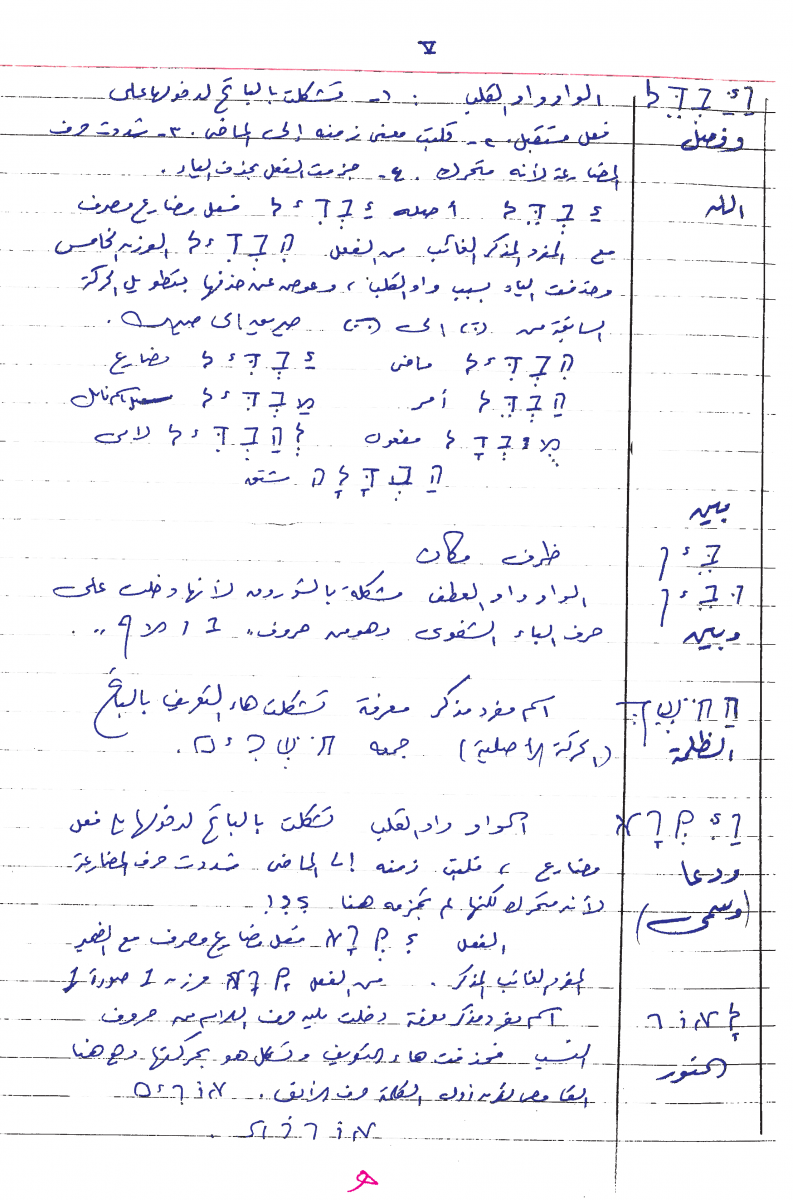 ٧
וַיַּבְדֵּל الواو واو القلب : ١- تشكلت بالباتح لدخولها على
وفصل فعل مستقبل. ٢- قلبت معنى زمنه إلى الماضى. ٣- شددت حرف
المضارعة لأنه متحرك. ٤- جزمت الفعل بحذف الياء.
الله יַבְדֵּל أصله יַבְדִּיל فعل مضارع مصرف
مع المفرد المذكر الغائب من الفعل הִבְדִּיל الوزن الخامس
وحذفت الياء بسبب واو القلب، وعوض عن حذفها بتطويل الحركة
السابقة من (ִ) إلى (ֵ) حيريق إلى صيريه.
הִבְדִּיל ماضى יַבְדִּיל مضارع
הַבְדֵּל أمر מַבְדִּיל اسم فاعل
מֻובְדָּל مفعول לְהַבְדִּיל لامى
הַבְדָּלָה مشتق
بين
בֵּין ظرف مكان
וּבֵין الواو واو العطف مشكلة بالشوروق لأنها دخلت على
وبين حرف الباء الشفوى وهو من حروف " ב ו מ ף ".
הַחֹשֶׁךְ اسم مفرد مذكر معرفة تشكلت هاء التعريف بالباتح
الظلمة (الحركة الأصلية) جمعه חֹשֶׁכִים.
וַיִּקְרָא الواو واو القلب تشكلت بالباتح لدخولها على فعل
ودعا مضارع، قلبت زمنه إلى الماضى شددت حرف المضارعة
(وسمى) لأنه متحرك لكنها لم تجزمه هنا ؟؟!
الفعل יִקְרָא فعل مضارع مصرف مع الضمير
المفرد الغائب المذكر. من الفعل קָרָא وزن 1 صورة 1
לָאוֹר اسم مفرد مذكر معرفة دخلت عليه حرف اللام من حروف
النسب فحذفت هاء التعريف وتشكل هو بحركتها وهى هنا
النور القامص لأن أول الكلمة حرف الألف. אוֹרִים
אוֹרוֹת.